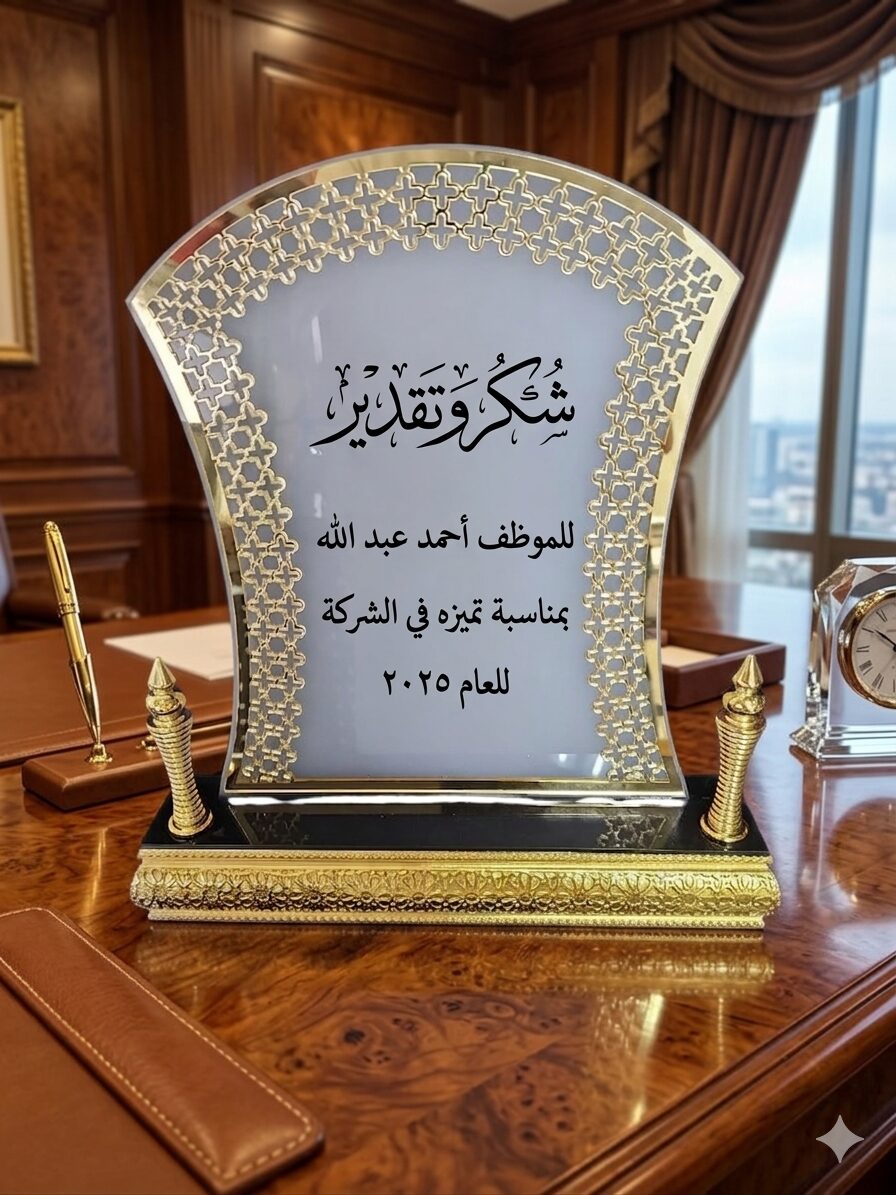 شُكْرٌ وَتَقْدِير
للموظف أحمد عبد الله
بمناسبة تميزه في الشركة
للعام ٢٠٢٥